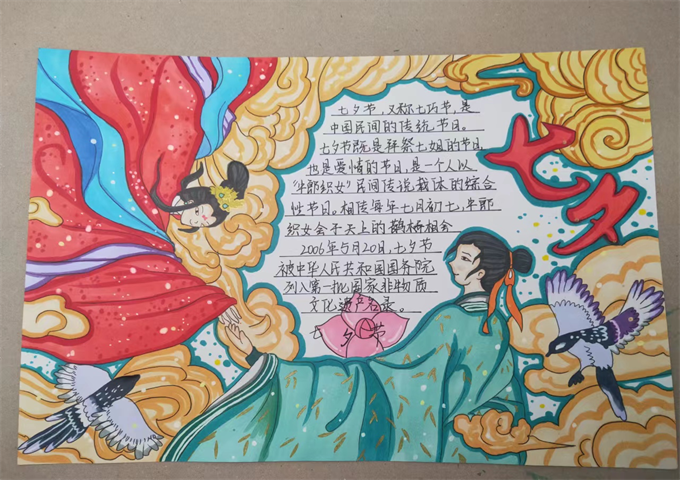 七夕节，又称七巧节，是
中国民间的传统节日。
七夕节既是拜祭七姐的节日
也是爱情的节日，是一个人以
“牛郎织女”民间传说载体的综合
性节日。相传每年七月初七，牛郎
织女会于天上的鹊桥相会
2006年5月20日，七夕节
被中华人民共和国国务院
列入第一批国家非物质
文化遗产名录。
七夕节
七夕